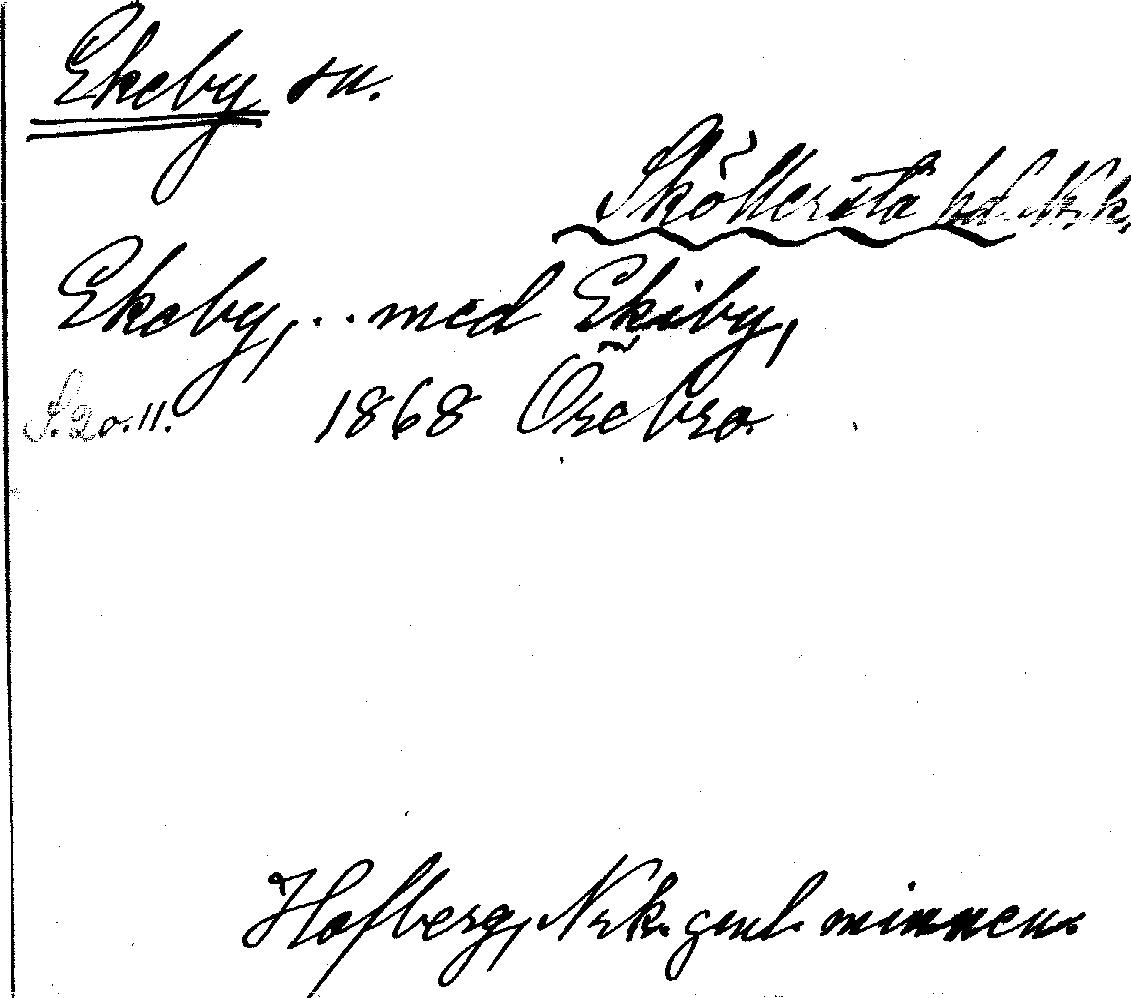 Ekeby sn.
Sköllersta hd. Nrk.
Ekeby, .. med Ekiby,
S. 20. 11. 1868 Örebro.
Hofberg, Nrk. gml. minnen.